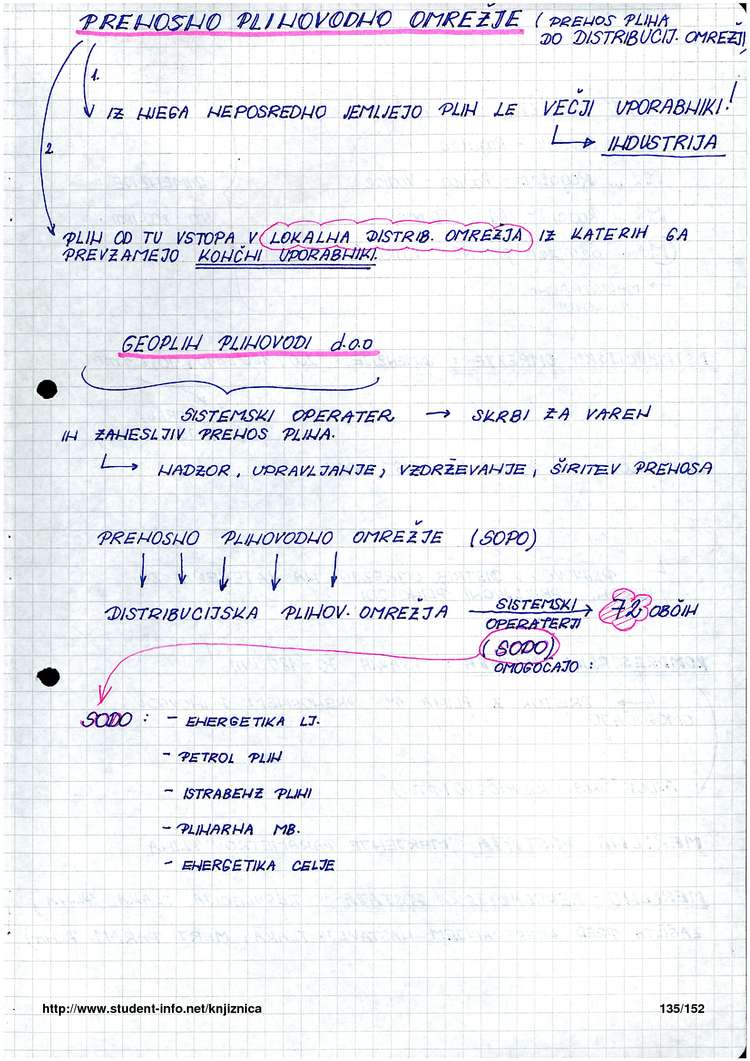 PRENOSNO PLINOVODNO OMREŽJE ( PRENOS PLINA
DO DISTRIBUCIJ. OMREŽIJ)
1.
IZ NJEGA NEPOSREDNO JEMLJEJO PLIN LE VEČJI UPORABNIKI!
INDUSTRIJA
2
PLIN OD TU VSTOPA V LOKALNA DISTRIB. OMREŽJA IZ KATERIH GA
PREVZAMEJO KONČNI UPORABNIKI.
GEOPLIN PLINOVODI d.o.o
SISTEMSKI OPERATER → SKRBI ZA VAREN
IN ZANESLJIV PRENOS PLINA.
NADZOR, UPRAVLJANJE, VZDRŽEVANJE, ŠIRITEV PRENOSA
PRENOSNO PLINOVODNO OMREŽJE (SOPO)
DISTRIBUCIJSKA PLINOV. OMREŽJA SISTEMSKI OPERATERJI → 72 OBČIN
(SODO)
OMOGOČAJO :
SODO : - ENERGETIKA LJ.
- PETROL PLIN
- ISTRABENZ PLINI
- PLINARNA MB.
- ENERGETIKA CELJE
http://www.student-info.net/knjiznica 135/152